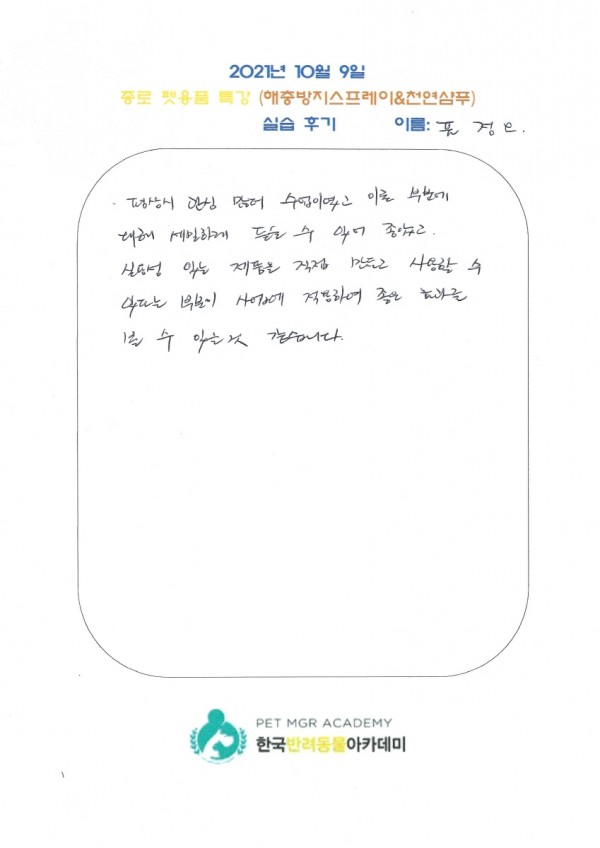 2021년 10월 9일
종로 펫용품 특강 (해충방지스프레이&천연샴푸)
실습 후기 이름: 표 정
평상시 관심 많던 수업이였고 이론 부분에
대해 세밀하게 들을 수 있어 좋았고.
실용성 있는 제품을 직접 만들고 사용할 수
있다는 부분이 사업에 적용하여 좋은 효과를
볼 수 있는것 같습니다.
PET MGR ACADEMY
한국반려동물아카데미